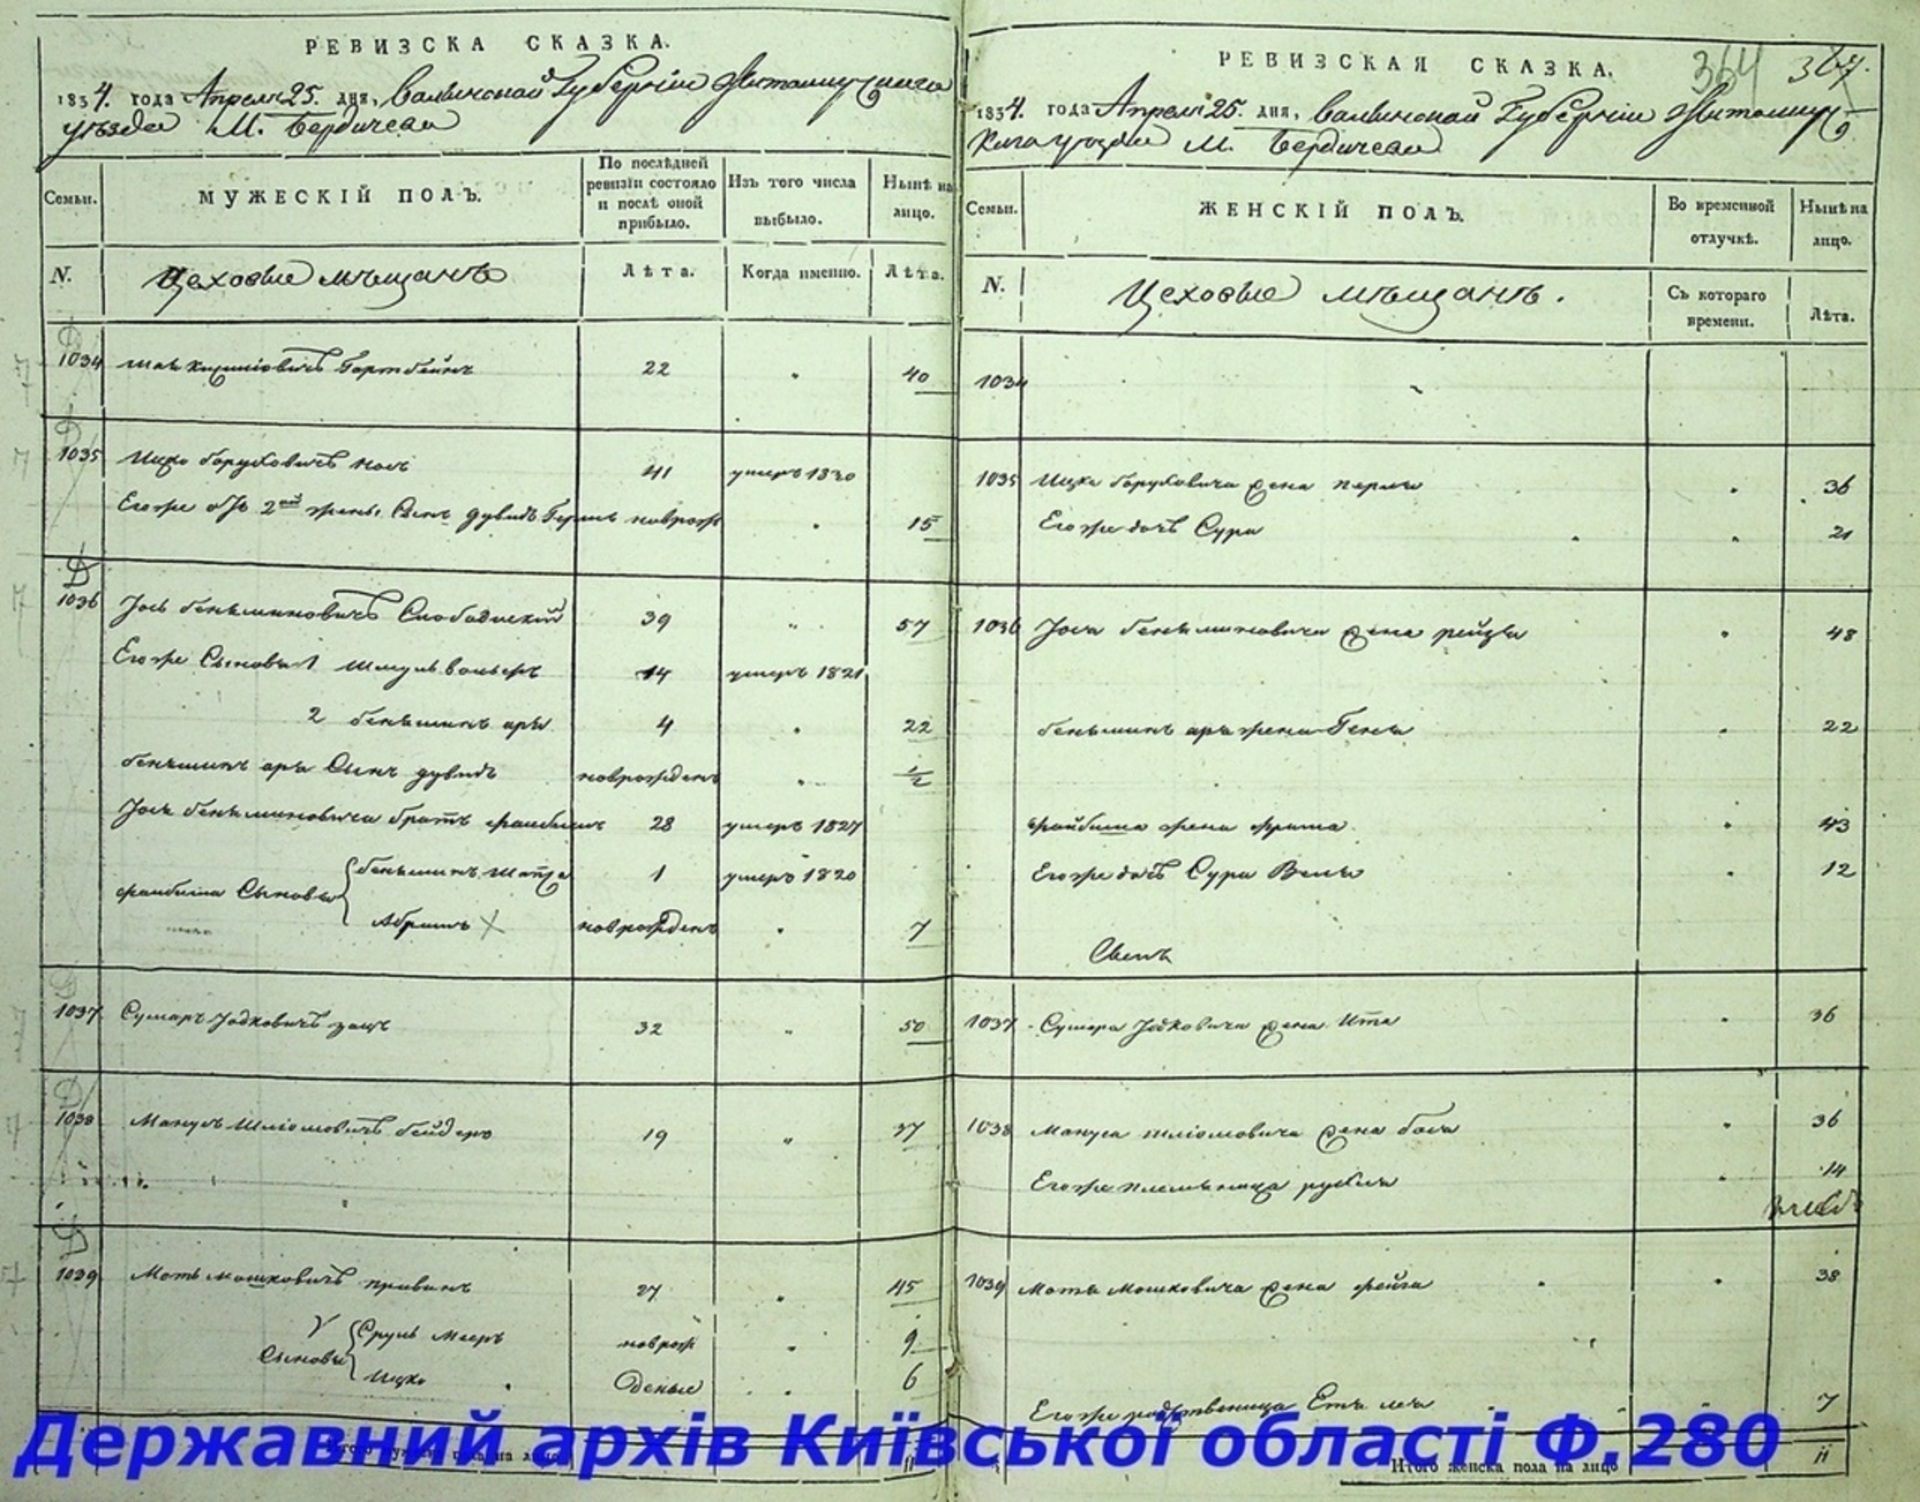 РЕВИЗСКА СКАЗКА.
1834. года Апреля 25. дня, Волынской Губерніи Житомирскаго
уѣзда М. Бердичева
Семьи.
МУЖЕСКІЙ ПОЛЪ.
По послѣдней ревизіи состояло и послѣ оной прибыло.
Изъ того числа выбыло.
Нынѣ на лицо.
N.
Цеховые мѣщанѣ
Лѣта.
Когда именно.
Лѣта.
1034 22 40
1035 Ицко Борухович 41 умеръ 1820
Егоже отъ 2ой жены Сынъ Дувидъ новрож 15
1036 Іось Беньминовичъ Слободиский 39 57
Егоже Сыновья 1 Шмуль Вольфъ 14 умеръ 1821
2 Беньминъ аръ 4 22
Беньминъ аръ Сынъ Дувидъ новорожденъ 1/2
Іось Беньминовича братъ Файбишъ 28 умеръ 1827
Файбиша Сыновья Беньминъ 1 умеръ 1820
Абрамъ новорожденъ 7
1037 32 50
1038 Манусъ Шліомовичъ 19 37
1039 Моть Мошковичъ 27 45
Сыновья Сруль Мееръ новрож 9
Ицко деные 6
РЕВИЗСКАЯ СКАЗКА.
364 367.
1834. года Апреля 25. дня, Волынской Губерніи Житомирс
каго уѣзда М. Бердичева
Семьи.
ЖЕНСКІЙ ПОЛЪ.
Во временной отлучкѣ.
Нынѣ на лицо.
N.
Цеховые мѣщанѣ.
Съ котораго времени.
Лѣта.
1034
1035 Ицка Боруховича жена Перля 36
Егоже дочь Сура 21
1036 Іося Беньминовича жена Рейзя 48
Беньминъ аръ жена Геня 22
Файбиша жена Фрима 43
Егоже дочь Сура 12
1037 Сумера жена Ита 36
1038 Мануса Шліомовича жена Бася 36
Егоже племяница 14
1039 Мотя Мошковича жена Фейга 38
Егоже родственица 7
Итого женска пола на лицо 11
Державний архів Київської області Ф.280